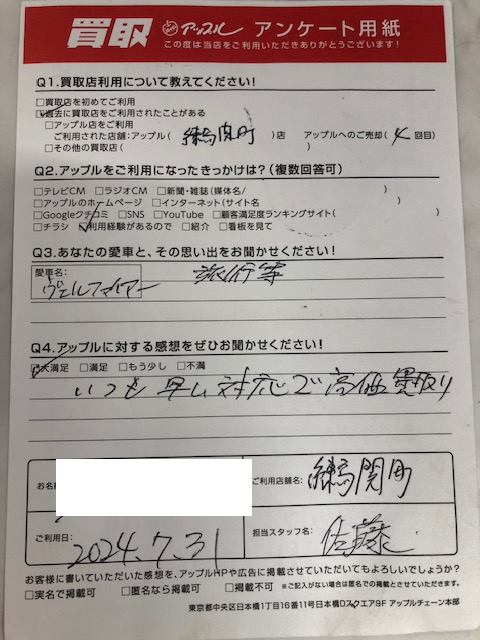 買取 アップル アンケート用紙
この度は当店をご利用いただきありがとうございます!
Q1.買取店利用について教えてください!
□買取店を初めてご利用
☑過去に買取店をご利用されたことがある
□アップル店をご利用
ご利用された店舗:アップル( 練馬関町 )店 アップルへのご売却( 4 回目)
□その他の買取店( )
Q2.アップルをご利用になったきっかけは?(複数回答可)
□テレビCM □ラジオCM □新聞・雑誌(媒体名/ )
□アップルのホームページ □インターネット(サイト名 )
□Googleクチコミ □SNS □YouTube □顧客満足度ランキングサイト( )
□チラシ ☑利用経験があるので □紹介 □看板を見て
Q3.あなたの愛車と、その思い出をお聞かせください!
愛車名:
ヴェルファイアー 旅行等
Q4.アップルに対する感想をぜひお聞かせください!
☑大満足 □満足 □もう少し □不満
いつも早い対応で高価買取り
お名 ご利用店舗名: 練馬関町
ご利用日: 2024.7.31 担当スタッフ名: 佐藤
お客様に書いていただいた感想を、アップルHPや広告に掲載させていただいてもよろしいでしょうか?
□実名で掲載可 □匿名なら掲載可 □掲載不可 ※ご記入がない場合は匿名での掲載とさせていただきます。
東京都中央区日本橋1丁目16番11号日本橋Dスクエア9F アップルチェーン本部